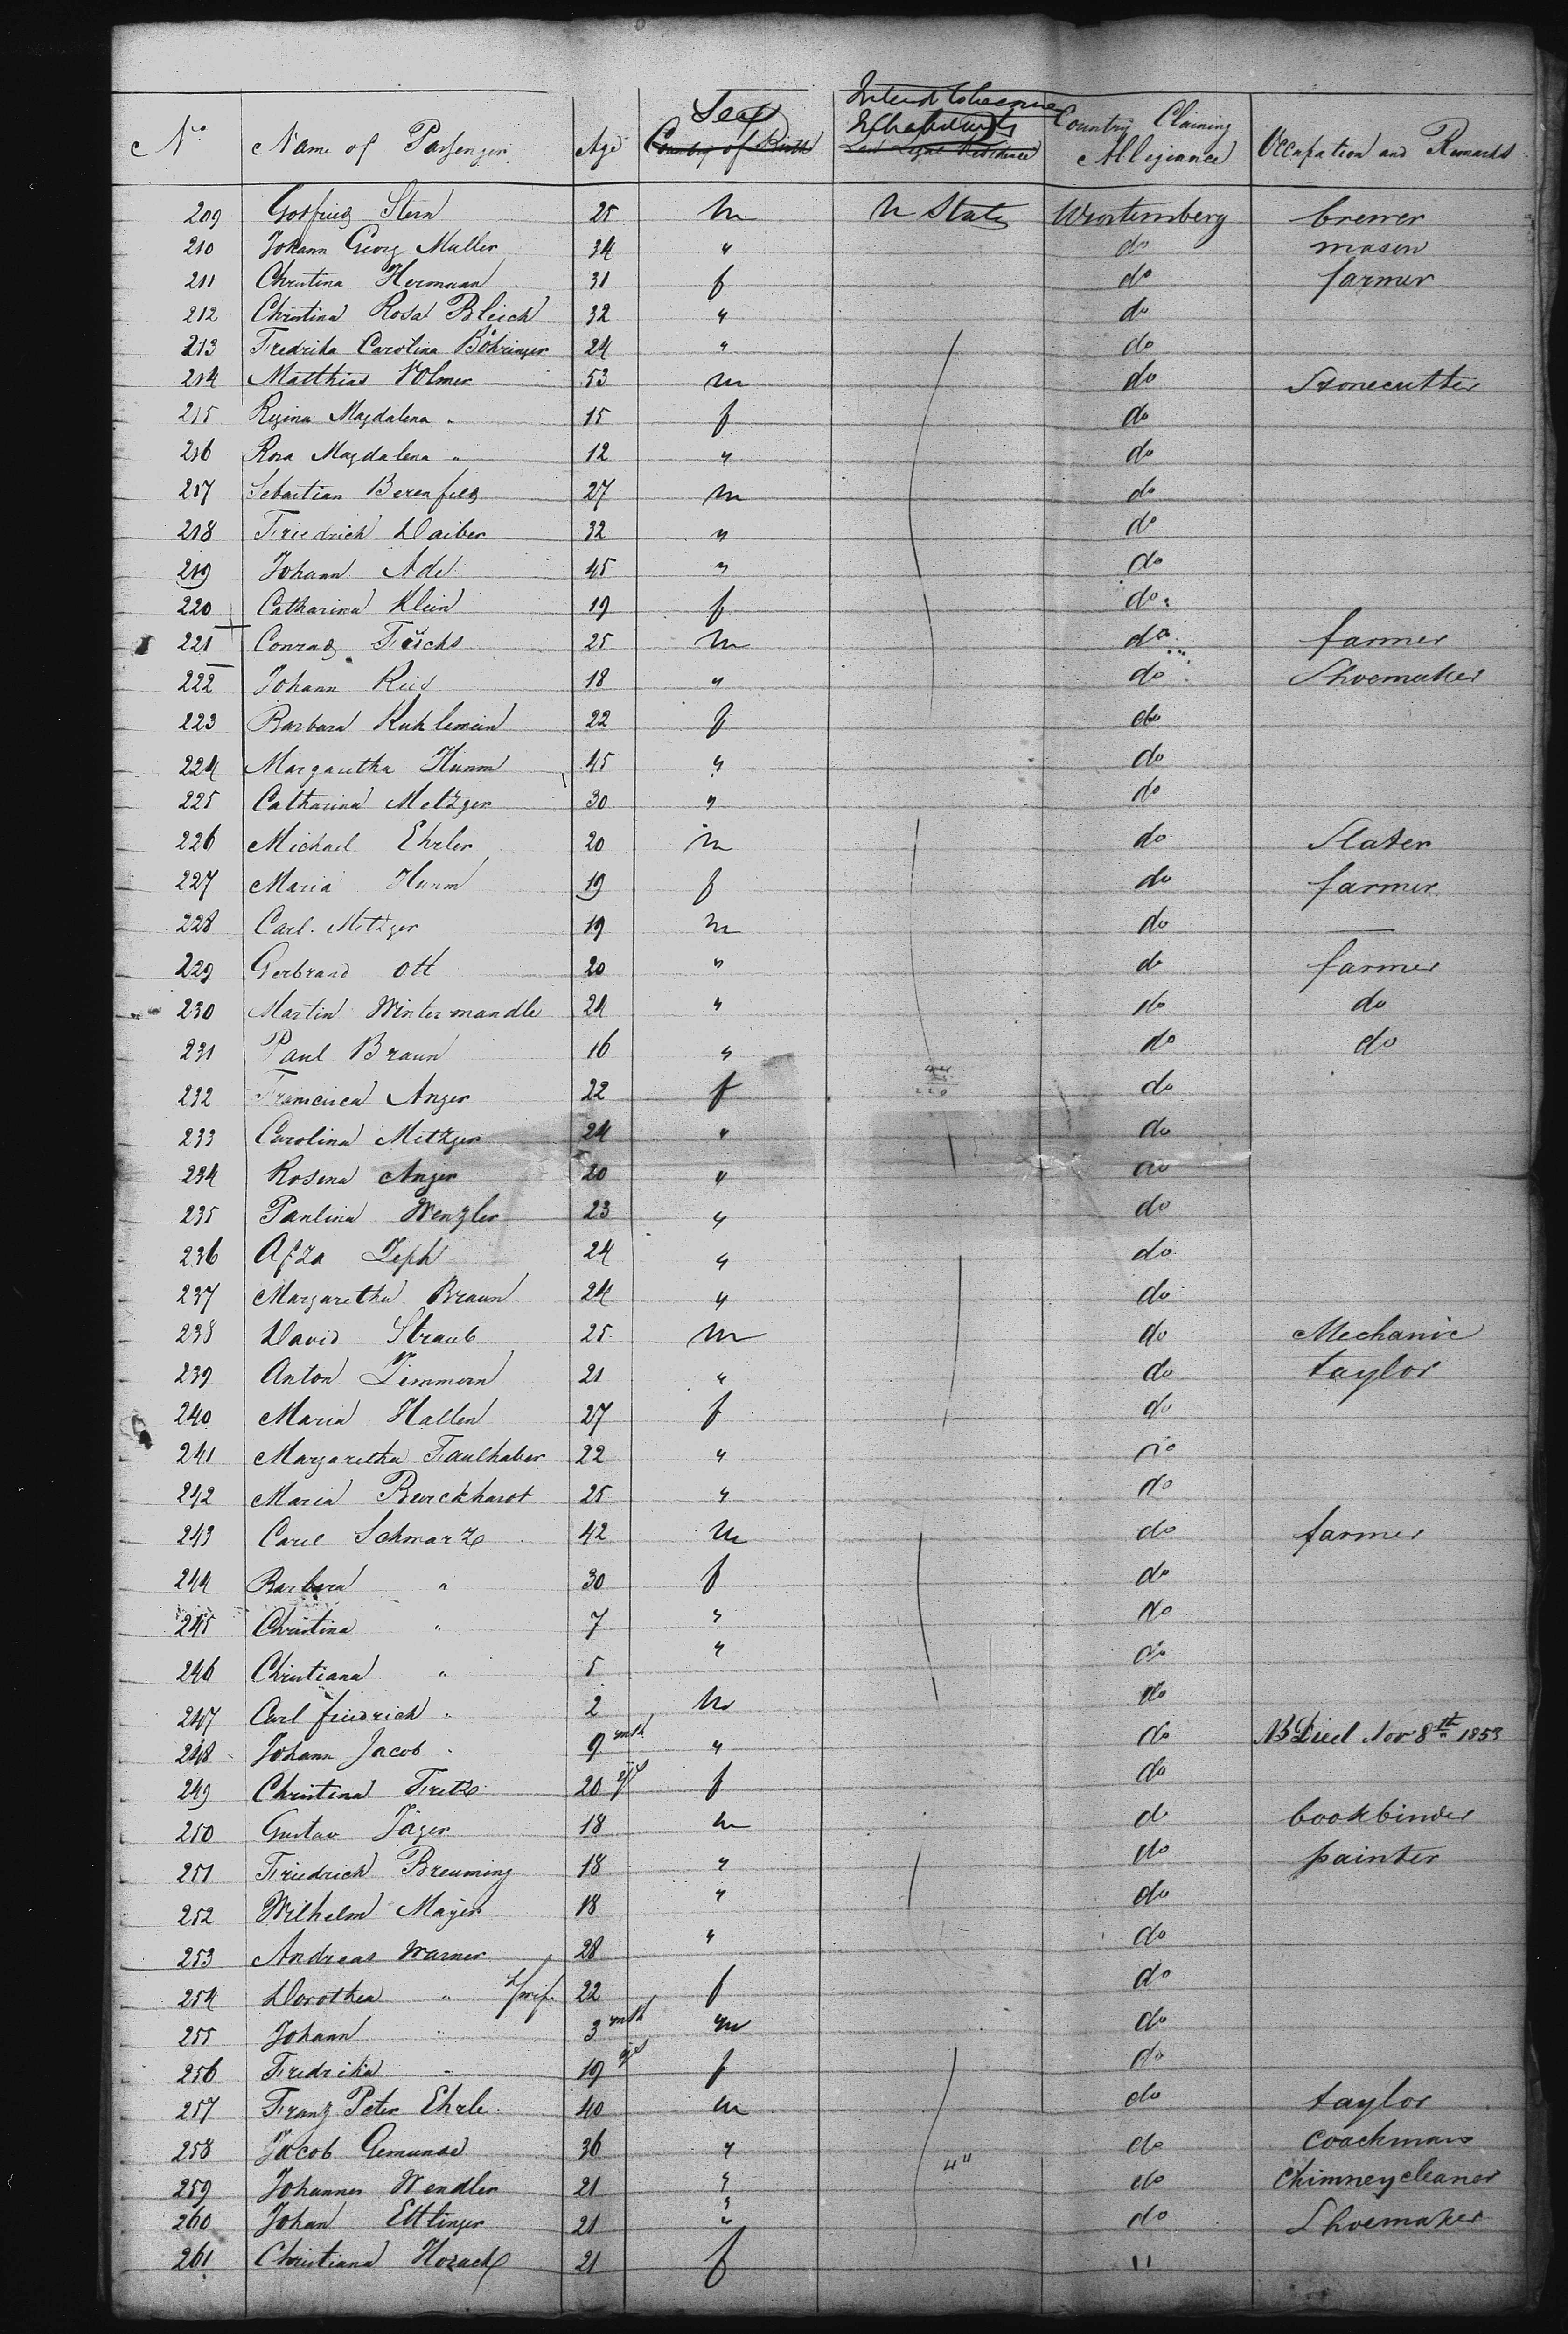 No. Name of Passenger Age Sex Country of Birth Intend to become Inhabitants Last Legal Residence Country Claiming Allegiance Occupation and Remarks
209 Gotfried Stern 25 m U States Wurtemberg brewer
210 Johann Georg Muller 34 " do mason
211 Christina Hermann 31 f do farmer
212 Christina Rosa Bleich 32 " do
213 Fredrika Carolina Böhringer 24 " do
214 Matthias Volmer 53 m do Stonecutter
215 Regina Magdalena " 15 f do
216 Rosa Magdalena " 12 " do
217 Sebastian Berenfield 27 m do
218 Friedrich Daiber 32 " do
219 Johann Adel 45 " do
220 Catharina Klein 19 f do
221 Conrad 25 m do farmer
222 Johann Reis 18 " do Shoemaker
223 Barbara Kuhlemein 22 f do
224 Margaretha Humm 45 " do
225 Catharina Metzger 30 " do
226 Michael Ehrler 20 m do Slater
227 Maria Humm 19 f do farmer
228 Carl Metzger 19 m do —
229 Gerbrand Ott 20 " do farmer
230 Martin Wintermandle 24 " do do
231 Paul Braun 16 " do do
232 Francisca Anger 22 f 220 do
233 Carolina Metzger 24 " do
234 Rosina Anger 20 " do
235 Paulina Wenzler 23 " do
236 Afza Zeph 24 " do
237 Margaretha Braun 24 " do
238 David Straub 25 m do Mechanic
239 Anton Zimmern 21 " do taylor
240 Maria Hallen 27 f do
241 Margaretha Faulhaber 22 " do
242 Maria Burckhardt 25 " do
243 Carl Schwarz 42 m do farmer
244 Barbara " 30 f do
245 Christina " 7 " do
246 Christiana " 5 " do
247 Carl friedrich " 2 m do
248 Johann Jacob " 9 mth " do NB Died Nov 8th 1853
249 Christina Fritz 20 ys f do
250 Gustav Jäger 18 m do bookbinder
251 Friedrich Breuming 18 " do painter
252 Wilhelm Mayer 18 " do
253 Andreas Warner 28 " do
254 Dorothea " wife 22 f do
255 Johann " 3 mth m do
256 Fredrika " 19 ys f do
257 Franz Peter Ehrle 40 m do taylor
258 Jacob Gemunde 36 " do coachman
259 Johannes Wendler 21 " " do chimneycleaner
260 Johan Ettlinger 21 " do Shoemaker
261 Christiana Horack 21 f "